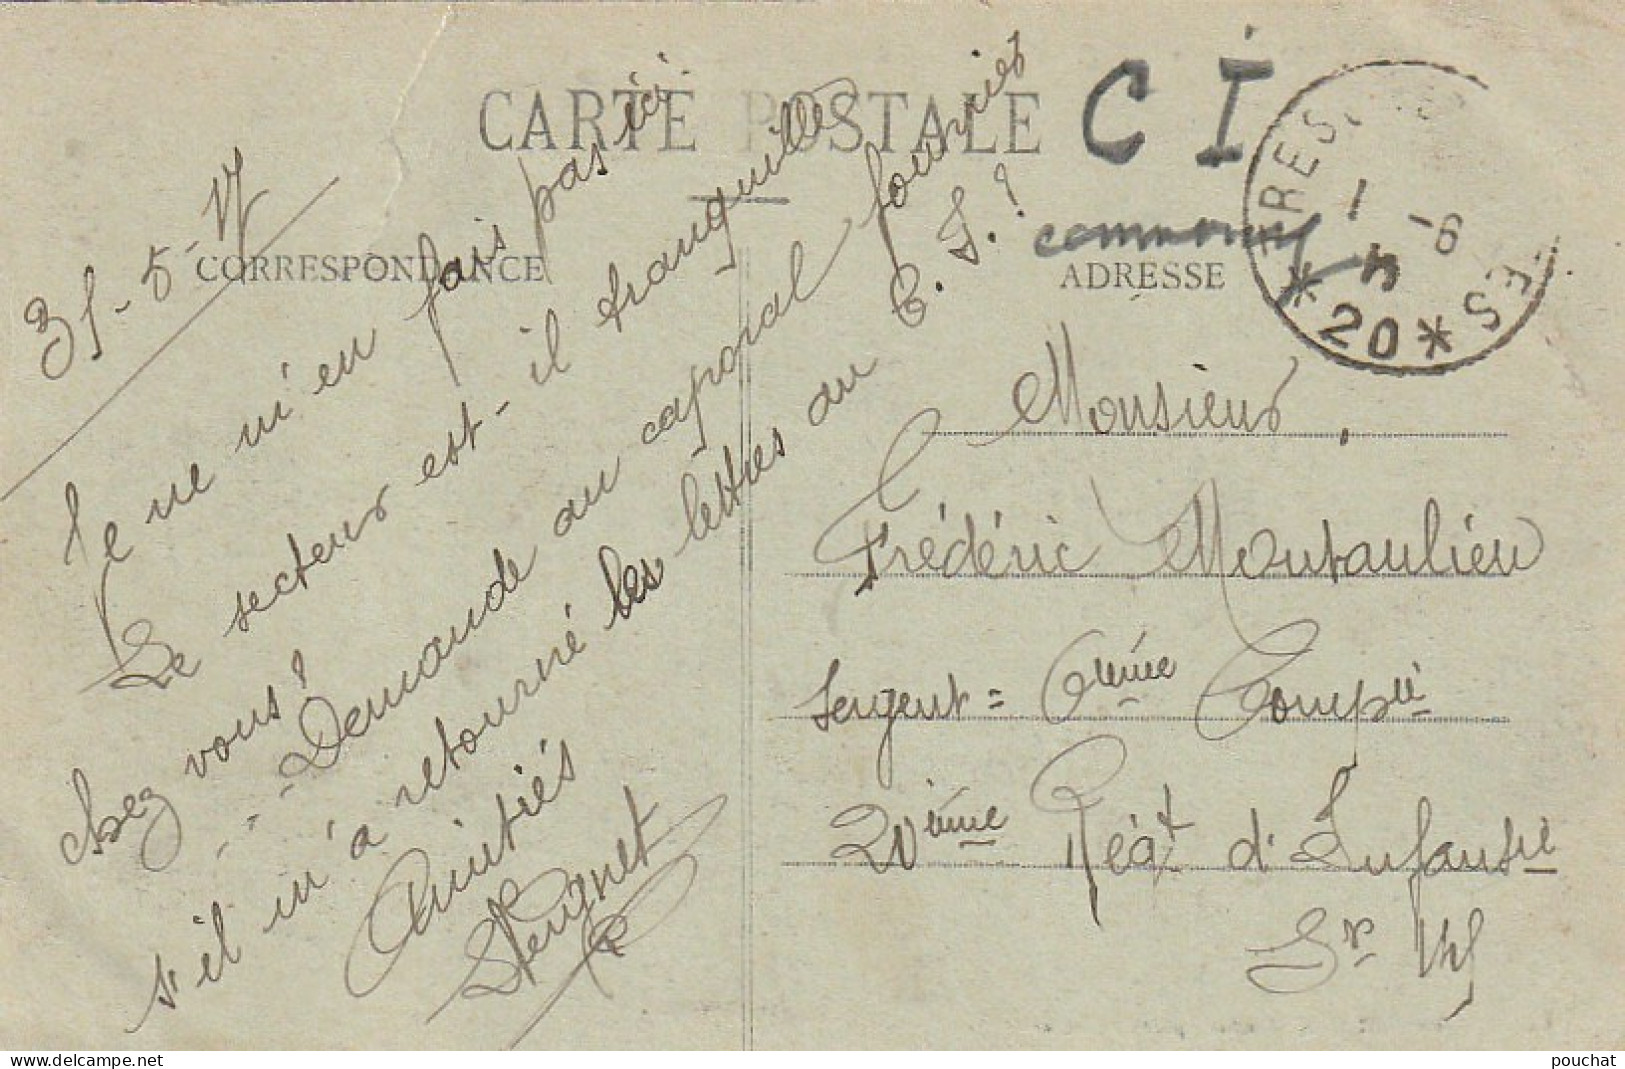 CARTE POSTALE
C I
CORRESPONDANCE
ADRESSE
31-5-17
Je ne m'en fais pas ici
Le secteur est-il tranquille
chez vous?
- Demande au caporal fourrier
s'il m'a retourné les lettres au
C. I.?
Amitiés
Monsieur
Frédéric Montaulieu
Sergent = 6ième Compie
20ième Régt d'Infanterie
Sr
TRES
1 -6
* 20 *
www.delcampe.net
pouchat